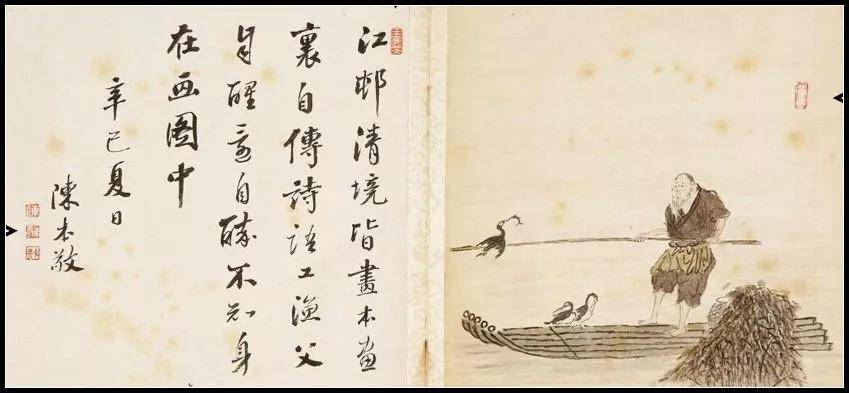 江邨清境皆畫本畵
裏自傳詩語工漁父
自醒還自醉不知身
在画圖中
辛巳夏日
陳本敬